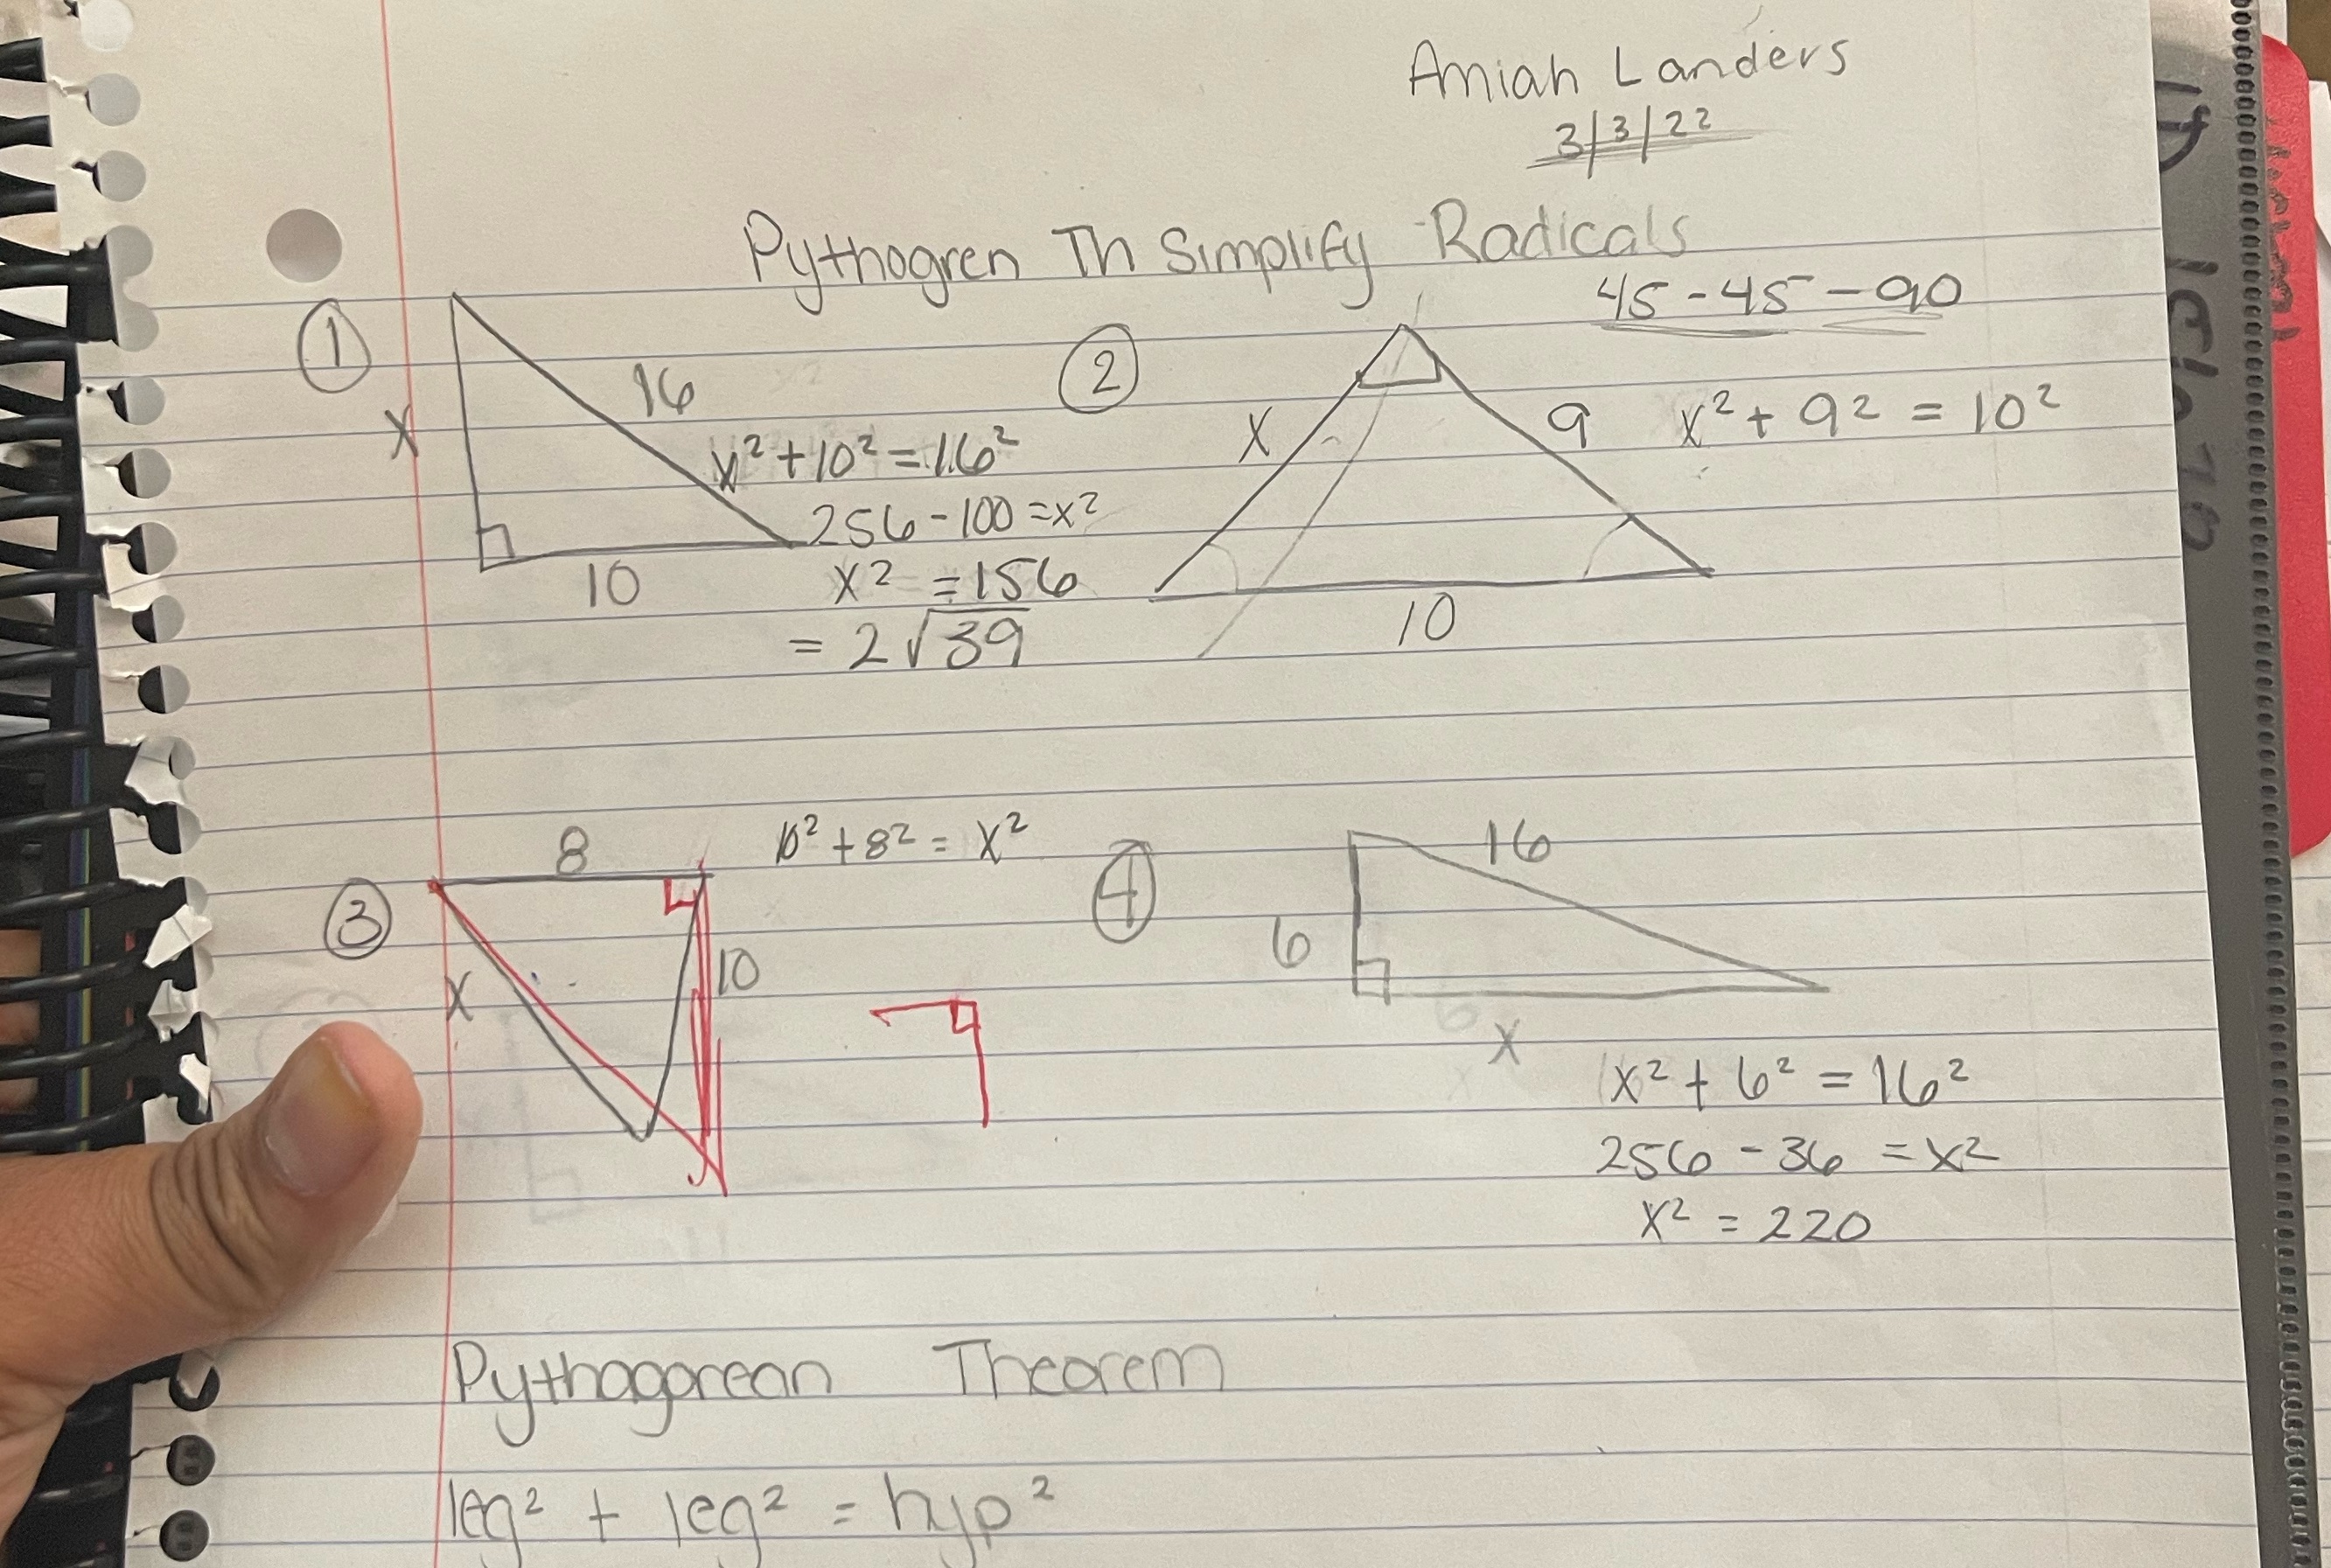 Amiah Landers
3/3/22
Pythogren Th Simplify Radicals
45-45-90
①
x
16
10
x²+10²=16²
256-100=x²
x²=156
=2√39
②
x
9
10
x²+9²=10²
③
8
x
10
10²+8²=x²
④
16
6
x
x²+6²=16²
256-36=x²
x²=220
Pythagorean Theorem
leg²+leg²=hyp²